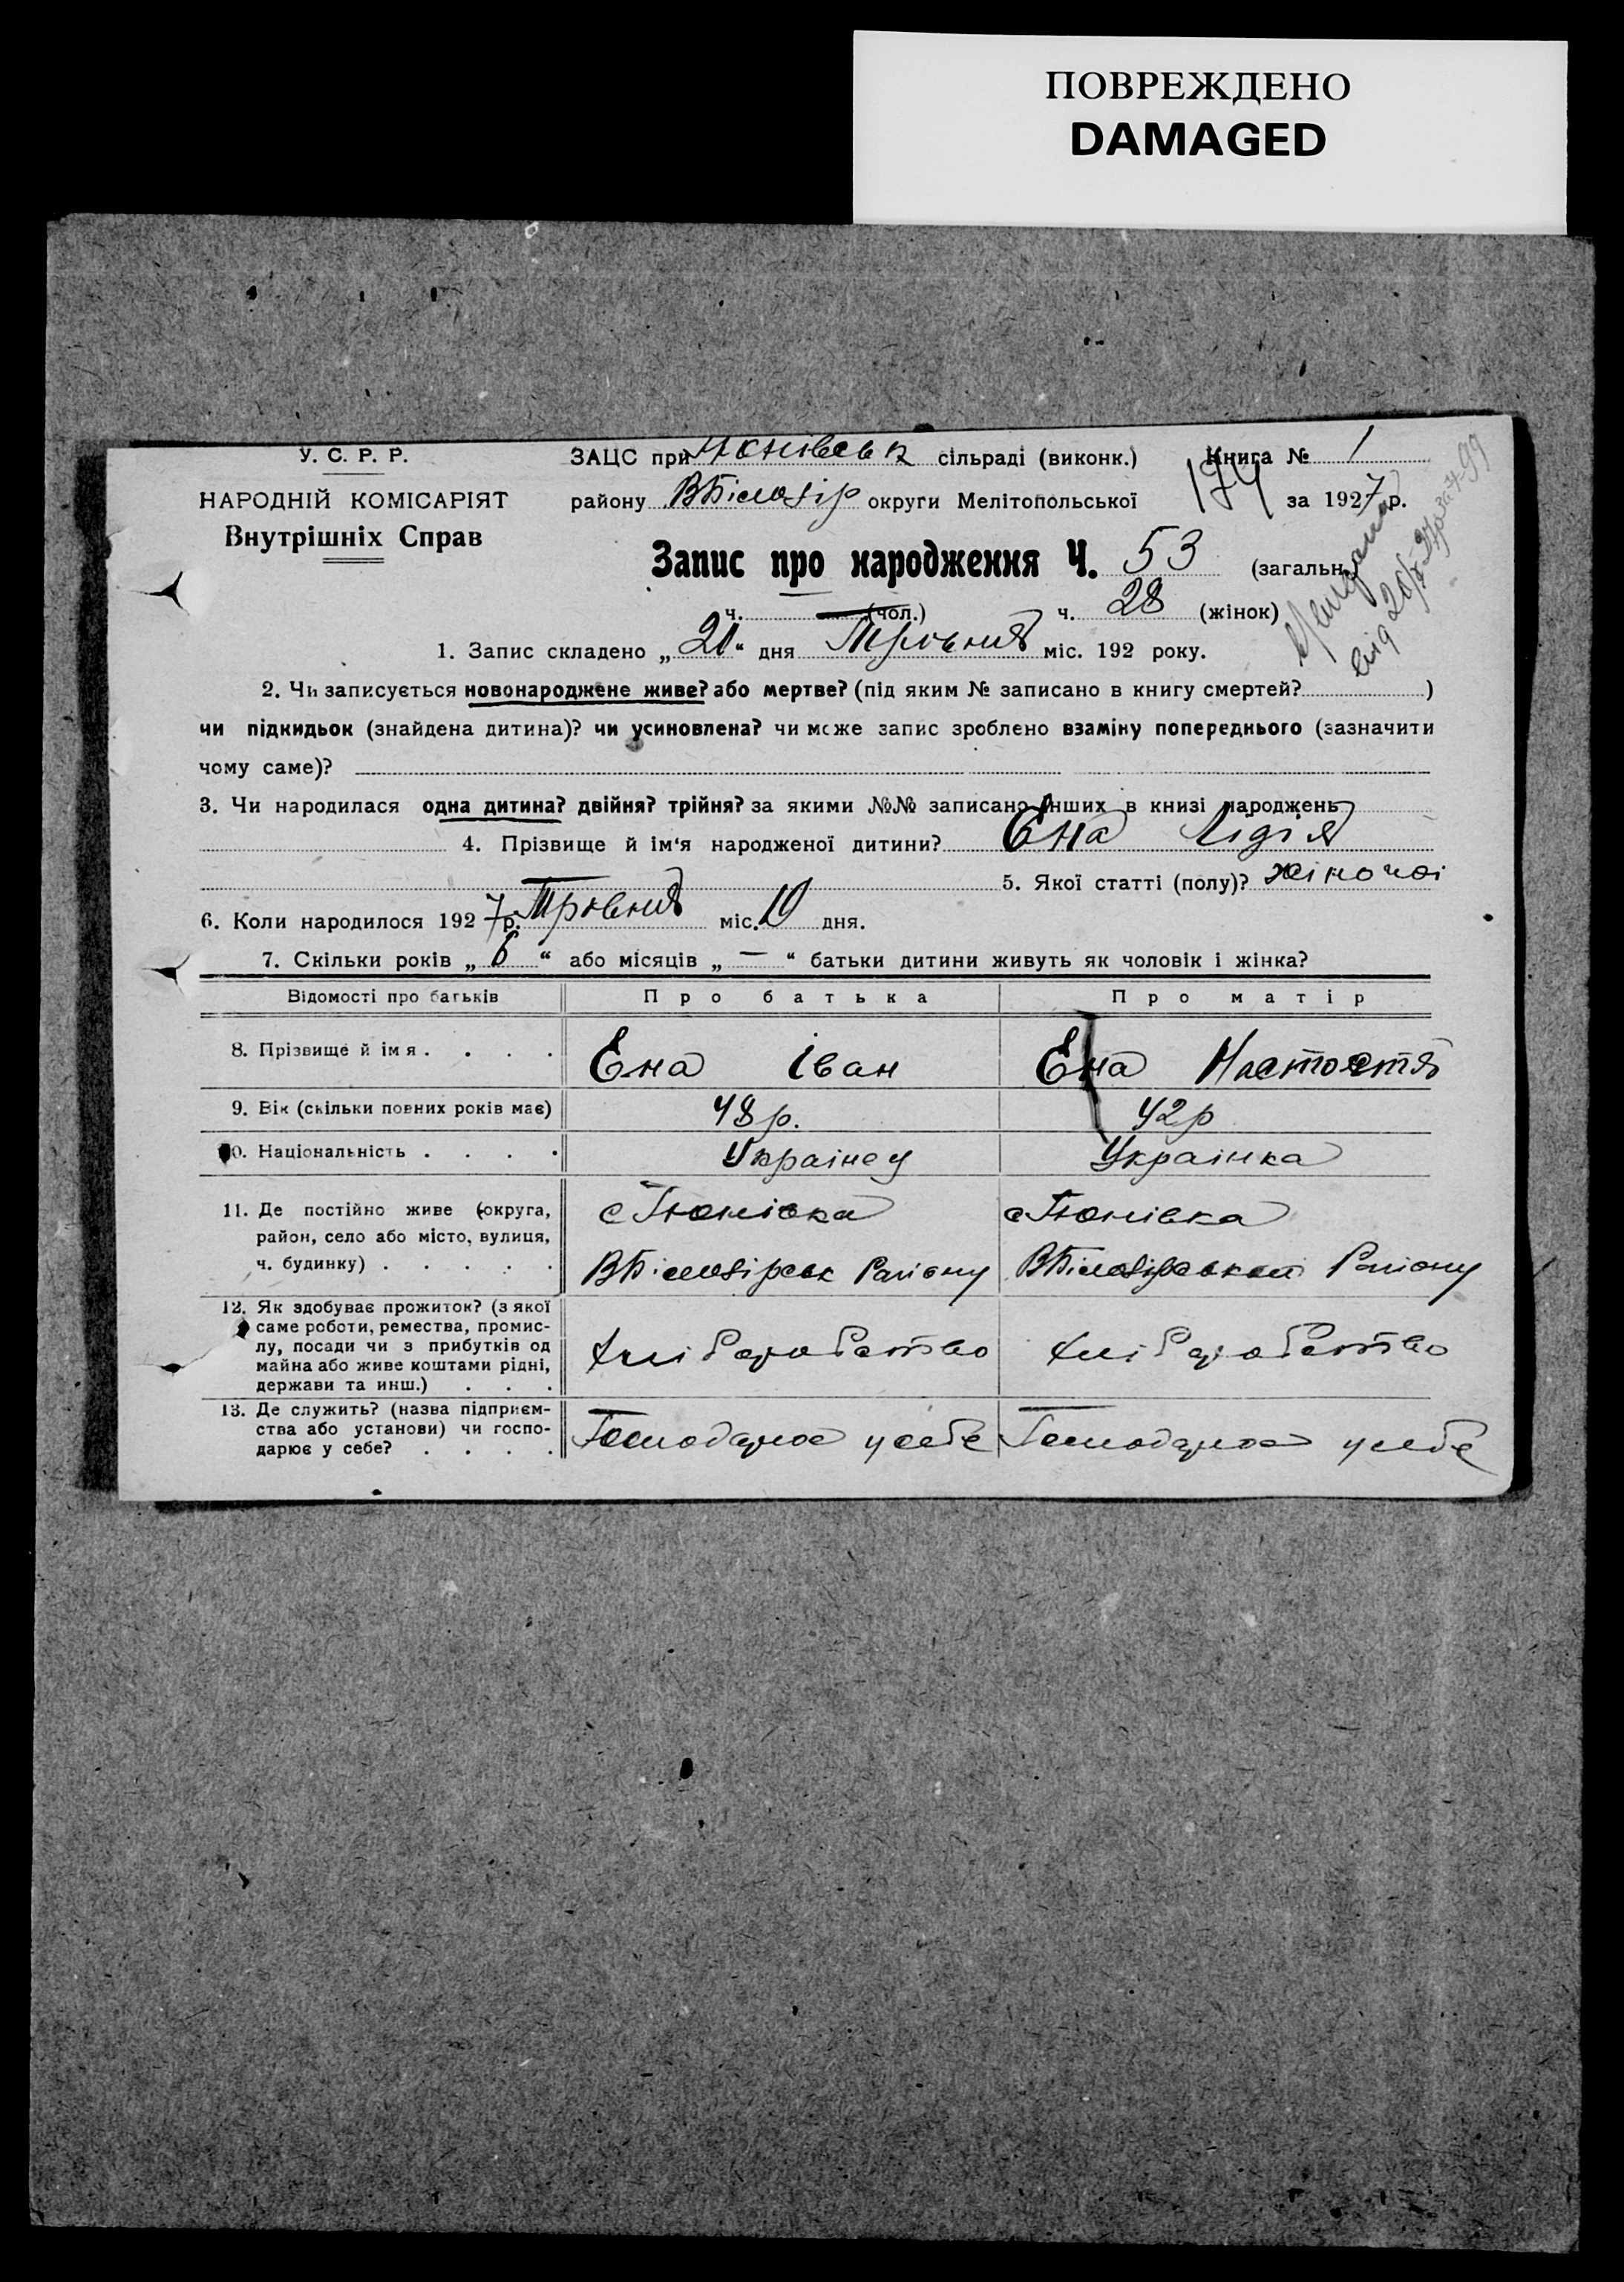 ПОВРЕЖДЕНО
DAMAGED
У. С. Р. Р.
НАРОДНІЙ КОМІСАРІЯТ
Внутрішніх Справ
ЗАЦС при сільраді (виконк.) Книга № 1
району ВБілозір округи Мелітопольської 174 за 1927 р.
Запис про народження Ч. 53 (загальн.)
ч. (чол.) ч. 28 (жінок)
1. Запис складено „21“ дня Травня міс. 192 року.
2. Чи записується новонароджене живе? або мертве? (під яким № записано в книгу смертей? )
чи підкидьок (знайдена дитина)? чи усиновлена? чи може запис зроблено взаміну попереднього (зазначити
чому саме)?
3. Чи народилася одна дитина? двійня? трійня? за якими №№ записано інших в книзі народжень
4. Прізвище й ім'я народженої дитини? Ена Лідія
5. Якої статті (полу)? жіночої
6. Коли народилося 1927 р. Травня міс. 19 дня.
7. Скільки років „6“ або місяців „—“ батьки дитини живуть як чоловік і жінка?
Відомості про батьків Про батька Про матір
8. Прізвище й ім я . . . . Ена Іван Ена Настастя
9. Вік (скільки повних років має) 48 р. 42 р
10. Національність . . . . Українец Українка
11. Де постійно живе (округа, район, село або місто, вулиця, ч. будинку) . . . . .
с Тюнівка с Тюнівка
ВБілозірськ Району ВБілозірської Району
12. Як здобуває прожиток? (з якої саме роботи, ремества, промислу, посади чи з прибутків од майна або живе коштами рідні, держави та инш.) . . .
Хліборобство Хліборобство
13. Де служить? (назва підприємства або установи) чи господарює у себе? . . . .
Господарює у себе Господарює у себе